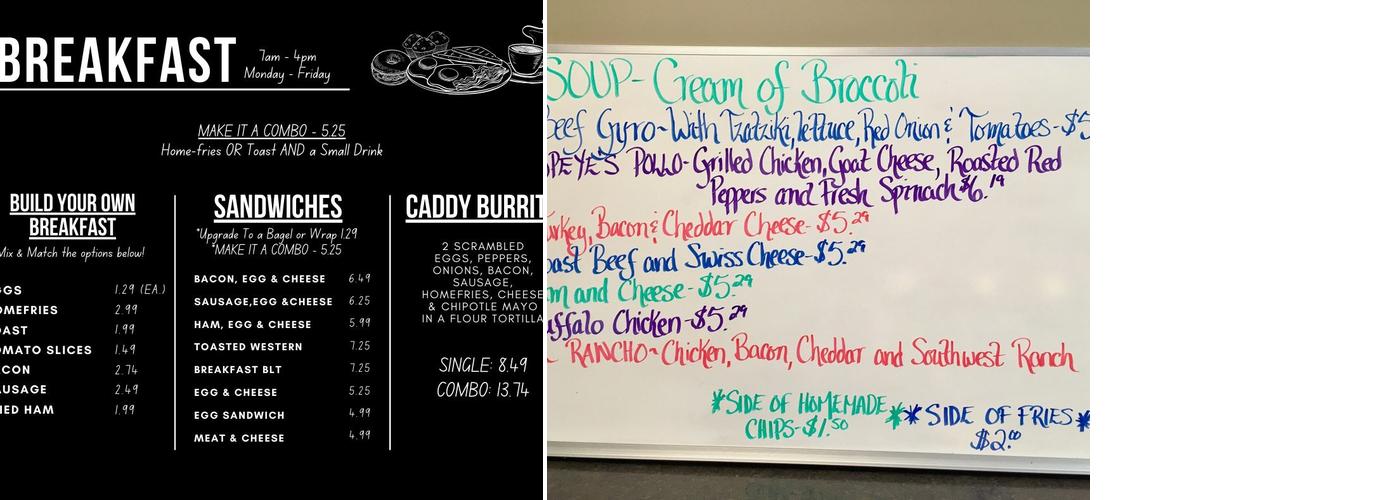 BREAKFAST
7am - 4pm
Monday - Friday
MAKE IT A COMBO - 5.25
Home-fries OR Toast AND a Small Drink
BUILD YOUR OWN
BREAKFAST
Mix & Match the options below!
GGS 1.29 (EA.)
OMEFRIES 2.99
OAST 1.99
OMATO SLICES 1.49
ACON 2.74
AUSAGE 2.49
IED HAM 1.99
SANDWICHES
*Upgrade To a Bagel or Wrap 1.29
*MAKE IT A COMBO - 5.25
BACON, EGG & CHEESE 6.49
SAUSAGE,EGG &CHEESE 6.25
HAM, EGG & CHEESE 5.99
TOASTED WESTERN 7.25
BREAKFAST BLT 7.25
EGG & CHEESE 5.25
EGG SANDWICH 4.99
MEAT & CHEESE 4.99
CADDY BURRIT
2 SCRAMBLED
EGGS, PEPPERS,
ONIONS, BACON,
SAUSAGE,
HOMEFRIES, CHEESE
& CHIPOTLE MAYO
IN A FLOUR TORTILLA
SINGLE: 8.49
COMBO: 13.74
SOUP- Cream of Broccoli
Beef Gyro-With Tzatziki, lettuce, Red Onion & Tomatoes-$5
OPEYE'S POLLO-Grilled Chicken, Goat Cheese, Roasted Red
Peppers and Fresh Spinach $6.19
urkey, Bacon & Cheddar Cheese-$5.29
oast Beef and Swiss Cheese-$5.29
m and Cheese-$5.29
uffalo Chicken-$5.29
RANCHO-Chicken, Bacon, Cheddar and Southwest Ranch
*SIDE OF HOMEMADE *
CHIPS-$1.50
*SIDE OF FRIES*
$2.00